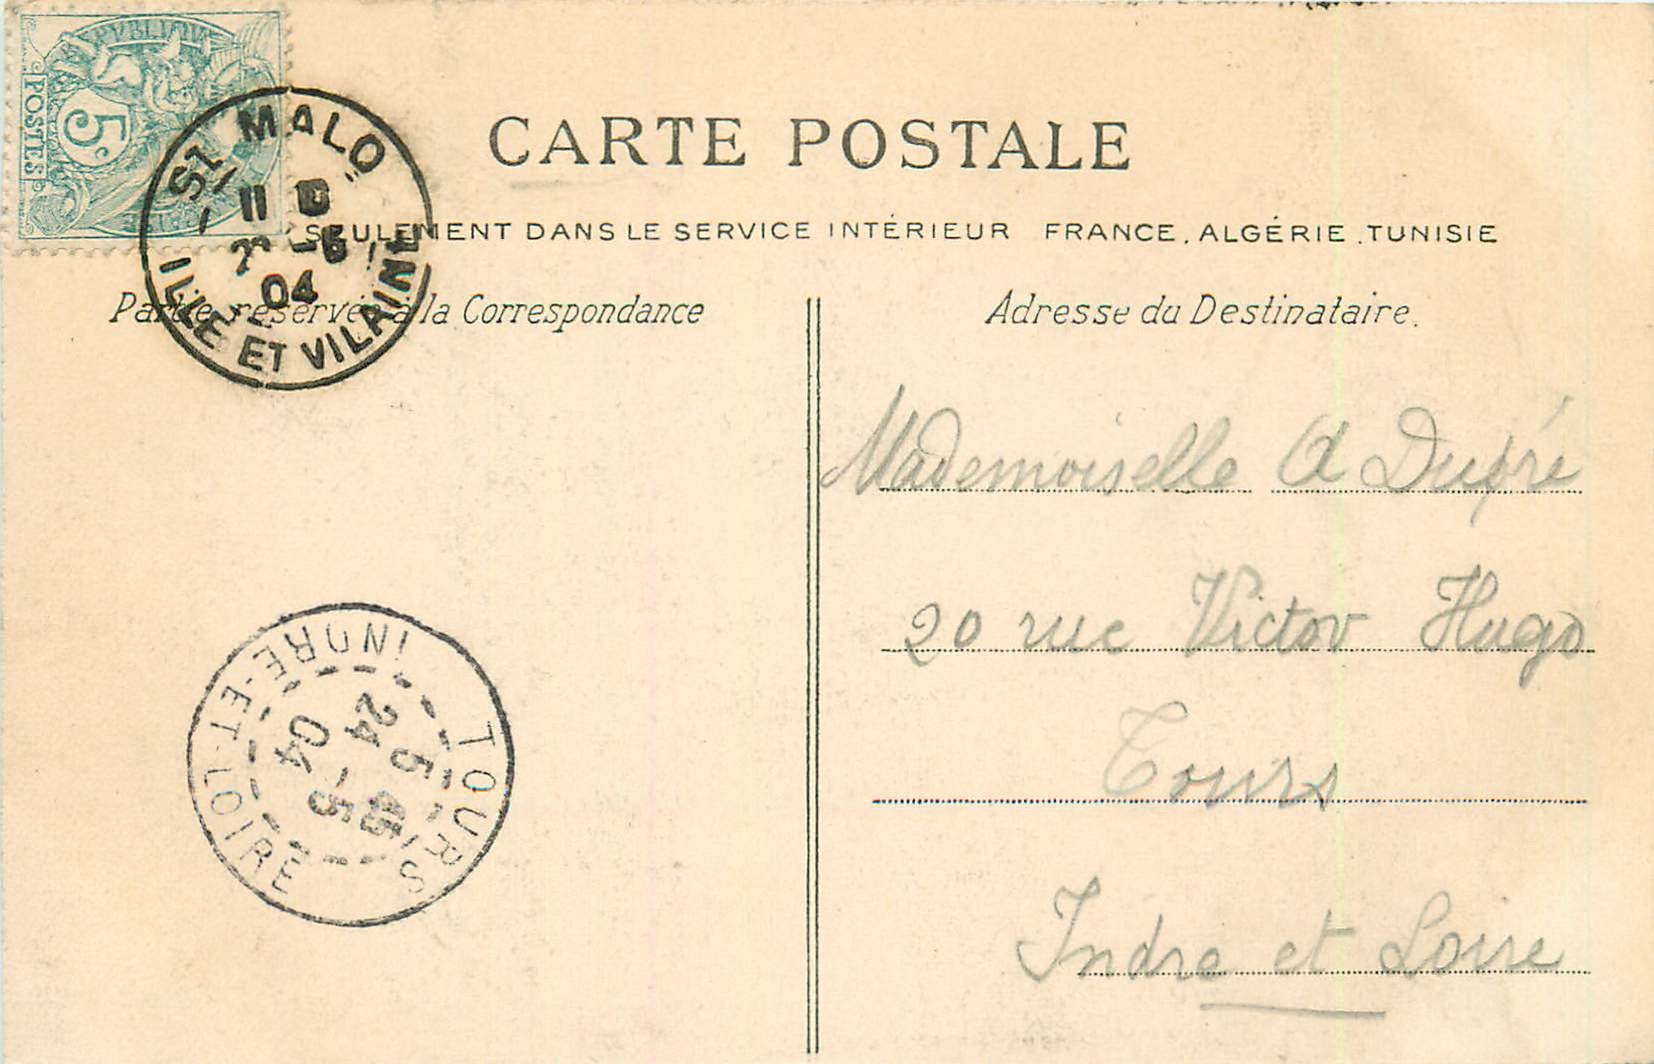 RÉPUBLIQUE
5c
POSTES
CARTE POSTALE
ST MALO
11
-5
04
ILLE ET VILAINE
SEULEMENT DANS LE SERVICE INTÉRIEUR FRANCE, ALGÉRIE, TUNISIE
Partie réservée à la Correspondance
Adresse du Destinataire.
Mademoiselle A Dupré
20 rue Victor Hugo
Tours
Indre et Loire
TOURS
5 45
24 -5
04
INDRE-ET-LOIRE